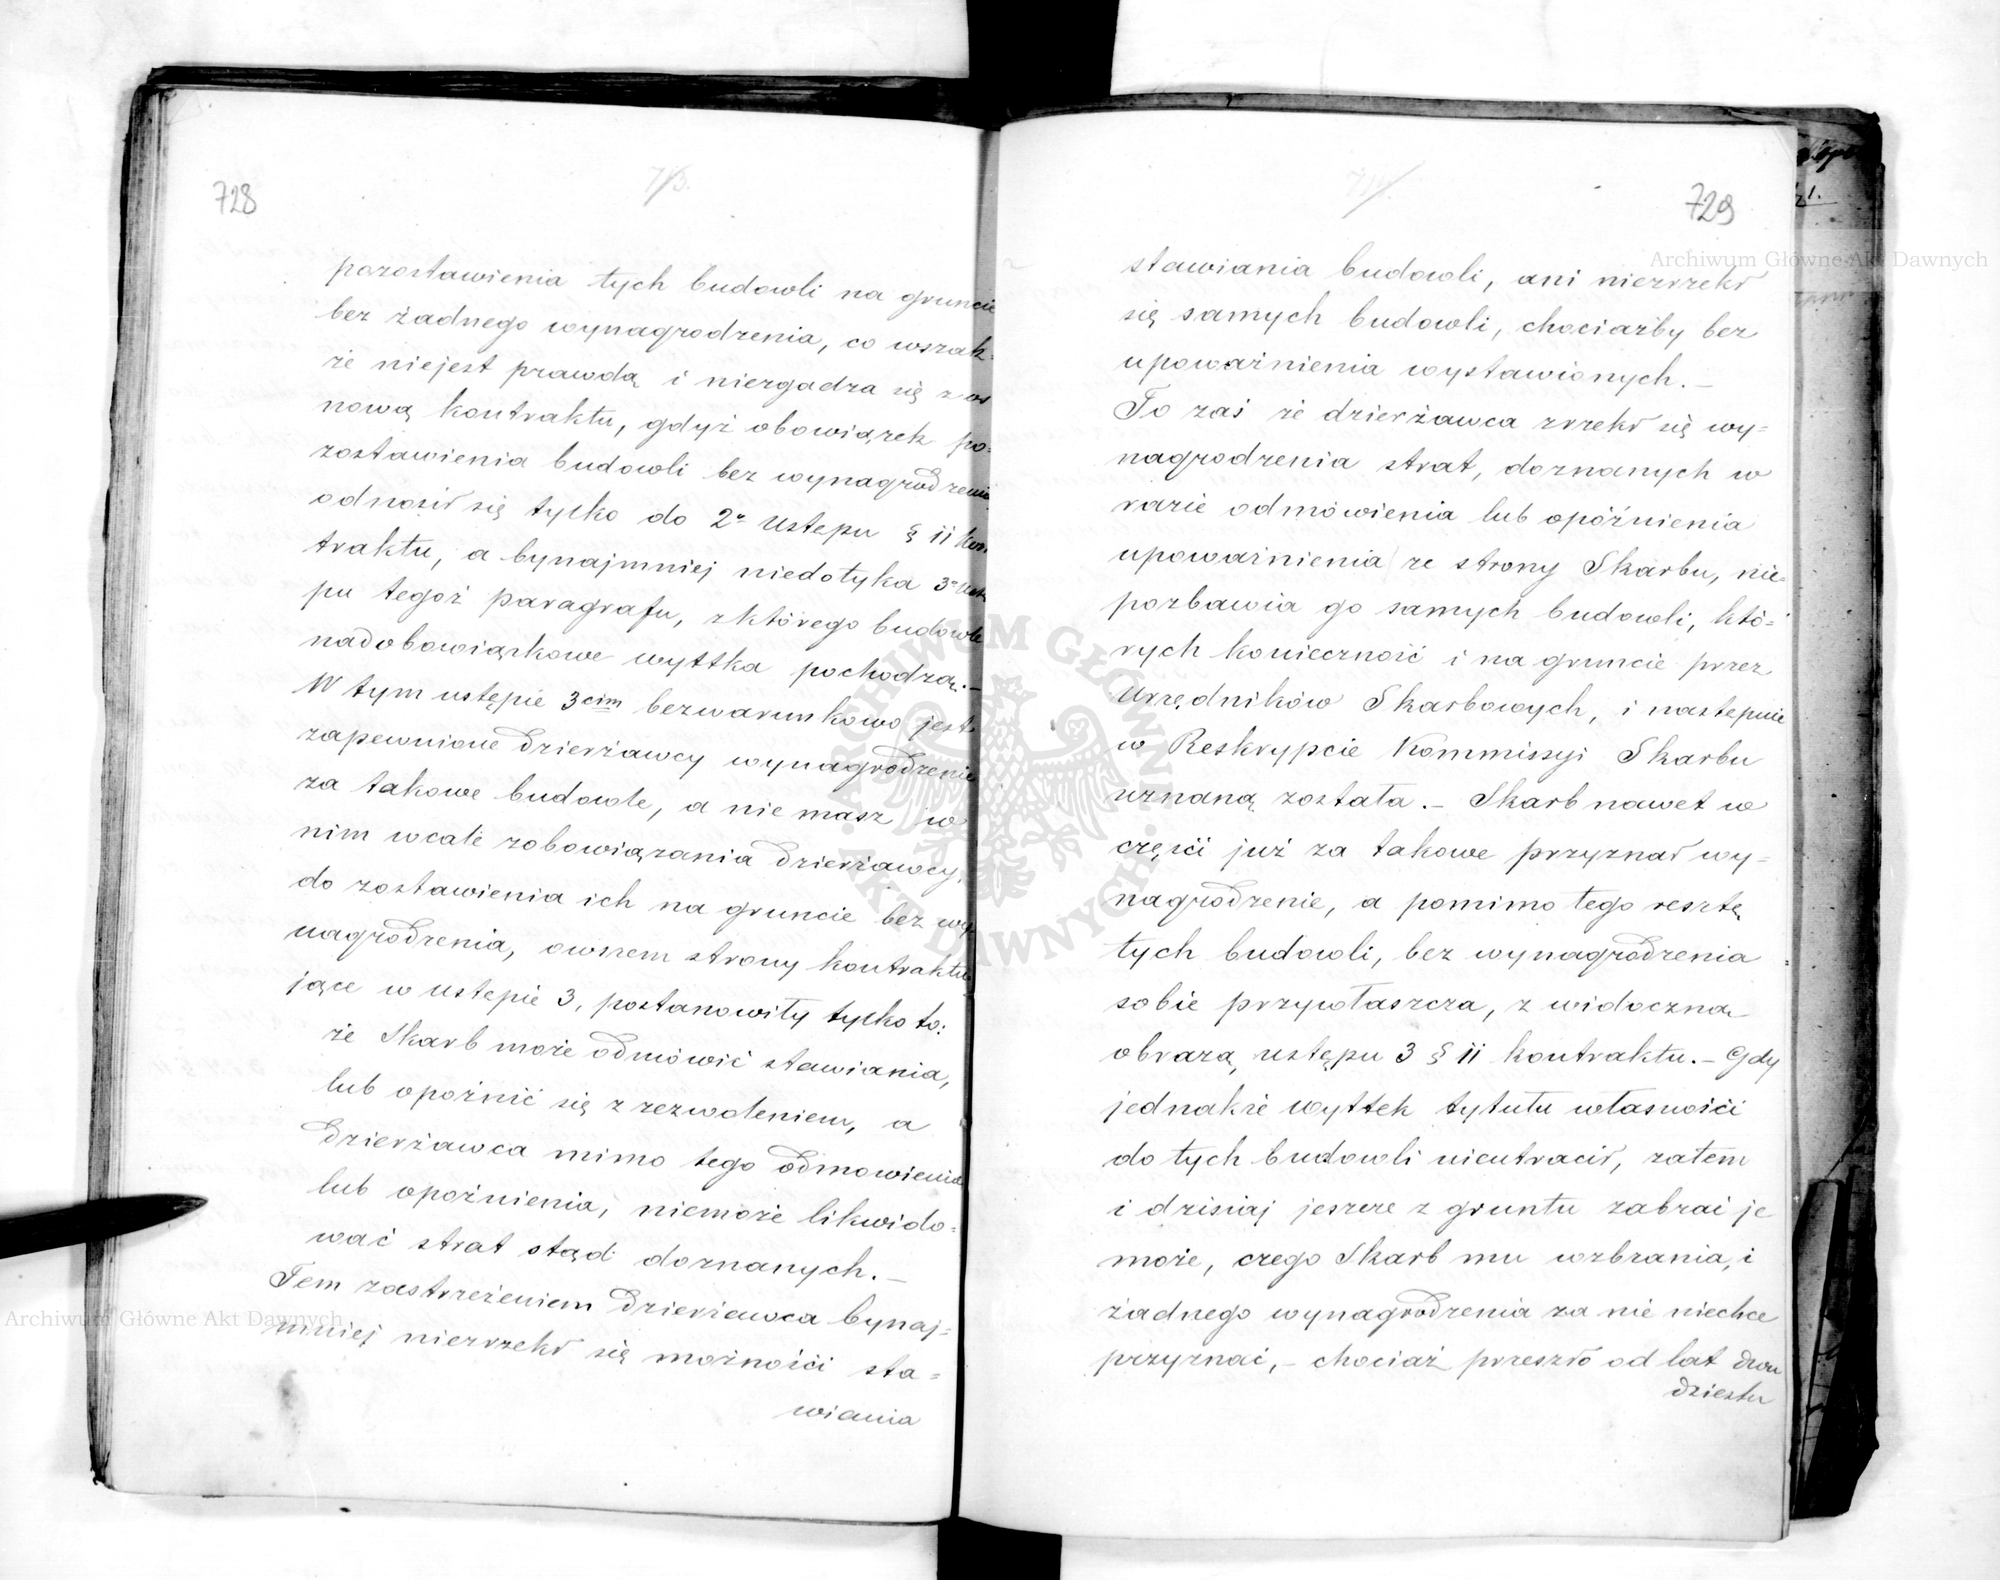 728
713.
pozostawienia tych budowli na gruncie
bez żadnego wynagrodzenia, co wszak-
że niejest prawdą i niezgadza się z os
nową kontraktu, gdyż obowiązek po-
zostawienia budowli bez wynagrodzenia
odnosił się tylko do 2º Ustepu § 11 kon
traktu, a bynajmniej niedotyka 3º Uste
pu tegoż paragrafu, z którego budowle
nadobowiązkowe wyttka pochodzą. –
W tym ustępie 3cim bezwarunkowo jest
zapewnione Dzierżawcy wynagrodzenie
za takowe budowle, a nie masz w
nim wcale zobowiązania Dzierżawcy,
do zostawienia ich na gruncie bez wy-
nagrodzenia, owszem strony kontraktu
jące w Ustepie 3, postanowiły tylko to:
że Skarb może odmówić stawiania,
lub opoźnić się z zezwoleniem, a
Dzierżawca mimo tego odmowienia
lub opoźnienia, niemoże likwido-
wać strat stąd doznanych. –
Tem zastrzeżeniem Dzierżawca bynaj-
mniej niezrzekł się możności sta-
wiania
729
stawiania budowli, ani niezrzekł
się samych budowli, chociażby bez
upoważnienia wystawionych. –
To zaś że dzierżawca zrzekł się wy-
nagrodzenia strat, doznanych w
razie odmówienia lub opóźnienia
upoważnienia ze strony Skarbu, nie-
pozbawia go samych budowli, któ-
rych konieczność i na gruncie przez
Urzędników Skarbowych, i nastepnie
w Reskrypcie Kommissyi Skarbu
uznaną została. – Skarb nawet w
części już za takowe przyznał wy-
nagrodzenie, a pomimo tego resztę
tych budowli, bez wynagrodzenia
sobie przywłaszcza, z widoczną
obrazą ustępu 3 § 11 kontraktu. – Gdy
jednakże wyttek tytułu własności
do tych budowli nieutracił, zatem
i dzisiaj jeszcze z gruntu zabrać je
może, czego Skarb mu wzbrania, i
żadnego wynagrodzenia za nie niechce
przyznać, – chociaż przeszło od lat dwu
dziestu
Archiwum Główne Akt Dawnych
Archiwum Główne Akt Dawnych
ARCHIWUM GŁÓWNE AKT DAWNYCH